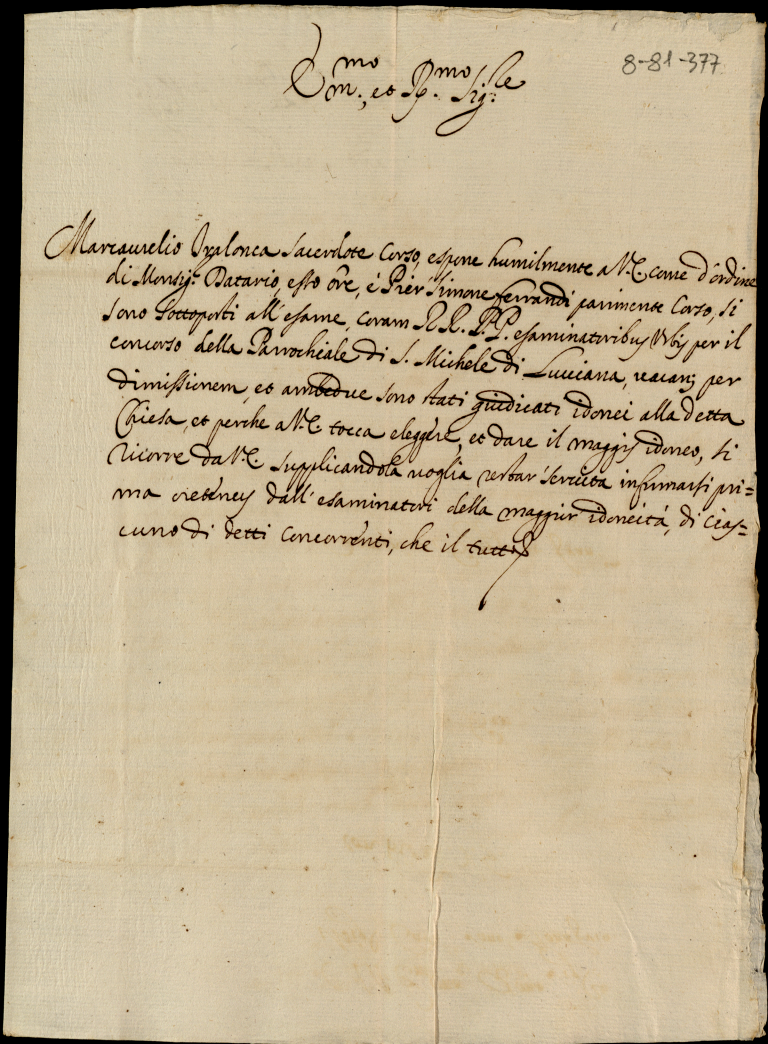 8-81-377
Em.mo et R.mo Sig.re
Marcaurelio sacerdote Corso, espone humilmente a V.E. come d'ordine
di Monsig.r Datario, esso Ore, e Pier Simone Ferrandi parimente Corso, si
sono sottoposti all'esame, coram RR. PP. esaminatoribus Urbis per il
concorso della Parrochiale di S. Michele di Lucciana, vacans per
dimissionem, et ambedue sono stati giudicati idonei alla detta
Chiesa, et perche a V.E. tocca eleggere, et dare il maggis idoneo, si
ricorre da V.E. supplicandola voglia restar servita infurmarsi pri=
ma dall'esaminatori della maggior idoneità, di cias=
cuno di detti concorrenti, che il tutto